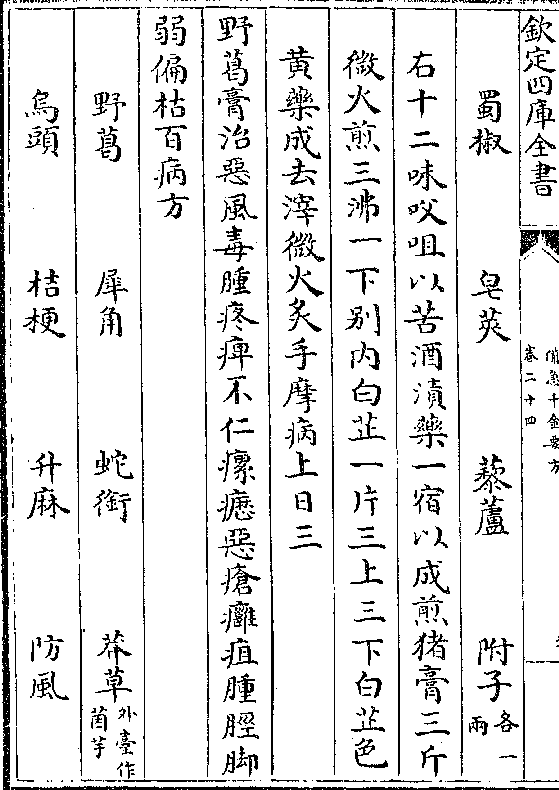 欽定四庫全書
備急千金要方
卷二十四
蜀椒　皂莢　藜蘆　附子各一兩
右十二味㕮咀以苦酒漬藥一宿以成煎猪膏三斤
微火煎三沸一下别内白芷一片三上三下白芷色
黄藥成去滓微火炙手摩病上日三
野葛膏治惡風毒腫疼痺不仁瘰癧惡瘡癰疽腫脛脚
弱偏枯百病方
野葛　犀角　蛇銜　莽草外臺作茵芋
烏頭　桔梗　升麻　防風